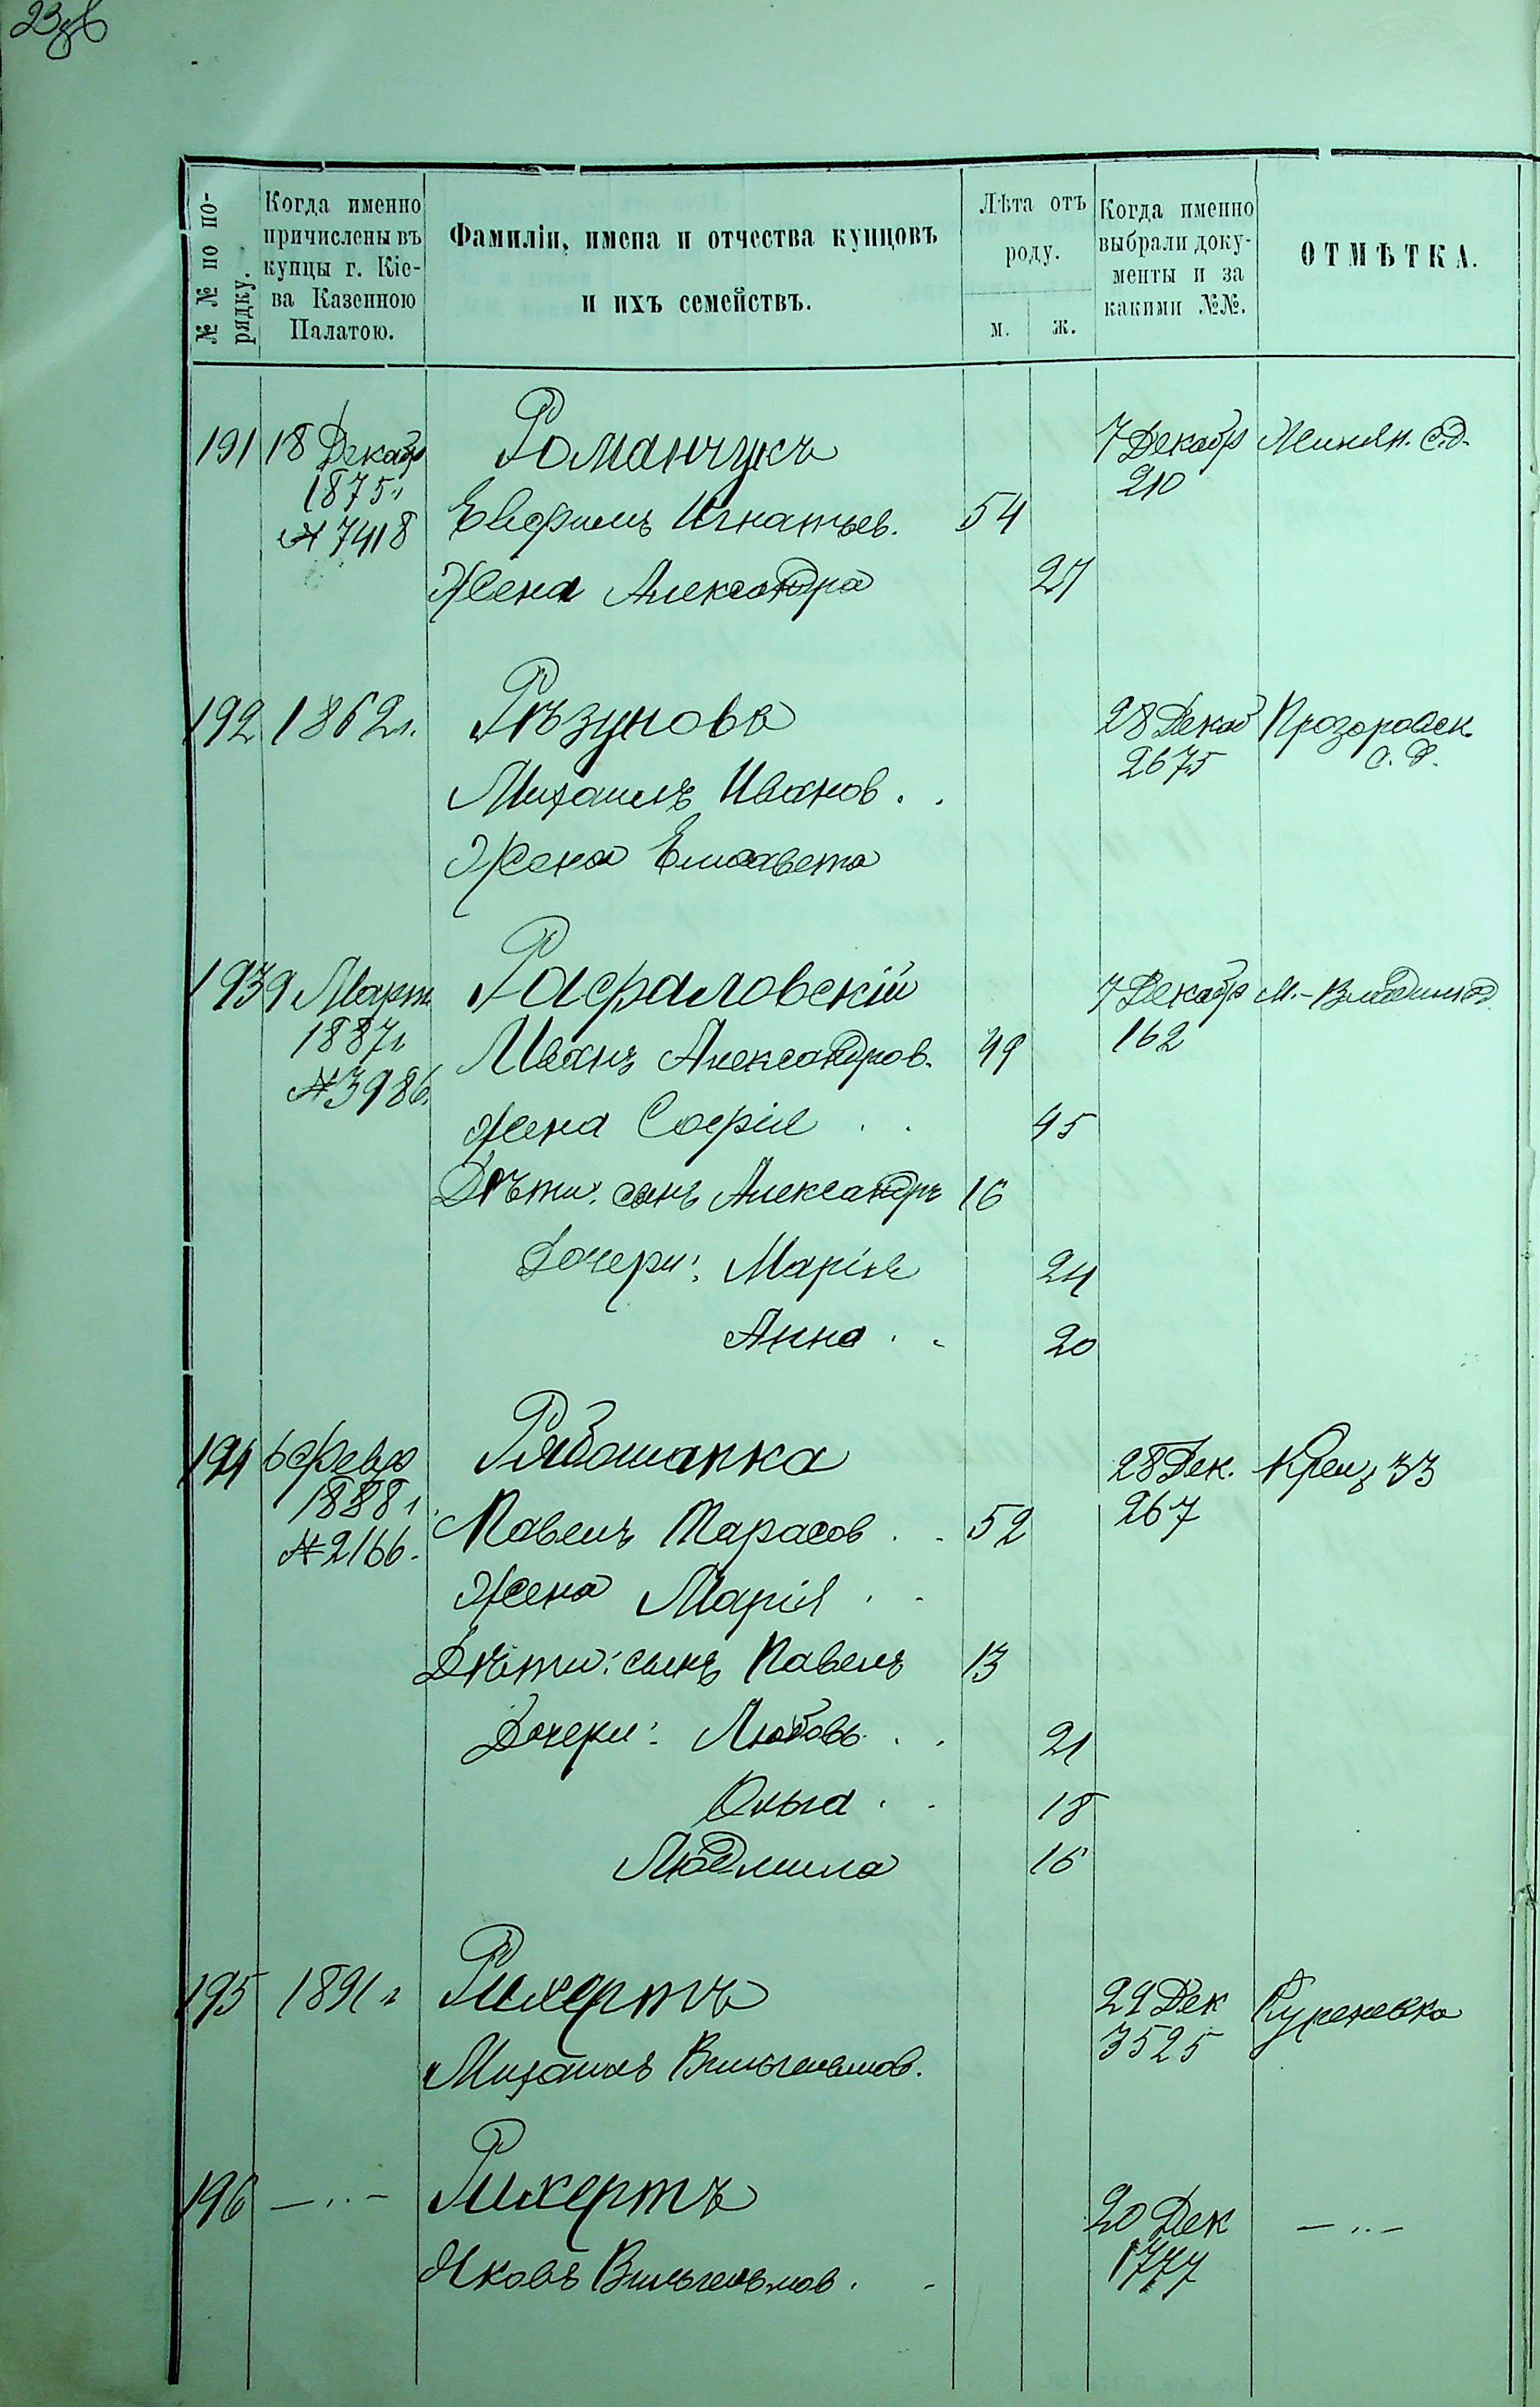 23об
№ № по по-
рядку.
Когда именно
причислены въ
купцы г. Кіе-
ва Казенною
Палатою.
Фамиліи, имена и отчества купцовъ
и ихъ семействъ.
Лѣта отъ
роду.
м. ж.
Когда именно
выбрали доку-
менты и за
какими №№.
ОТМѢТКА.
191 18 Декабр Романчукъ 7 Декабр с.д.
1875 г. 210
№ 7418 Евфимъ Игнатьев. 54
Жена Александра 27
192 1862 г. Рѣзуновъ 28 Декаб Прозоровск.
2675 с. д.
Михаилъ Иванов . .
Жена Елисавета
193 9 Март. Рафаловскій 7 Декабр М.-Владим
1887 г. Иванъ Александров. 49 162
№ 3986.
Жена Софія . . 45
Дѣти: сынъ Александръ 16
Дочери: Марія 24
Анна . . 20
194 6 Февр Рябошапка 28 Дек. Крещ 33
1888 г. 267
№ 2166. Павелъ Тарасов . . 52
Жена Марія . .
Дѣти: сынъ Павелъ 13
Дочери: Любовь . . 21
Ольга . . 18
Людмила 16
195 1891 г Рихертъ 29 Дек Куреневка
3525
Михаилъ Вильгельмов.
196 — .. — Рихертъ 20 Дек — .. —
1777
Яковъ Вильгельмов . .